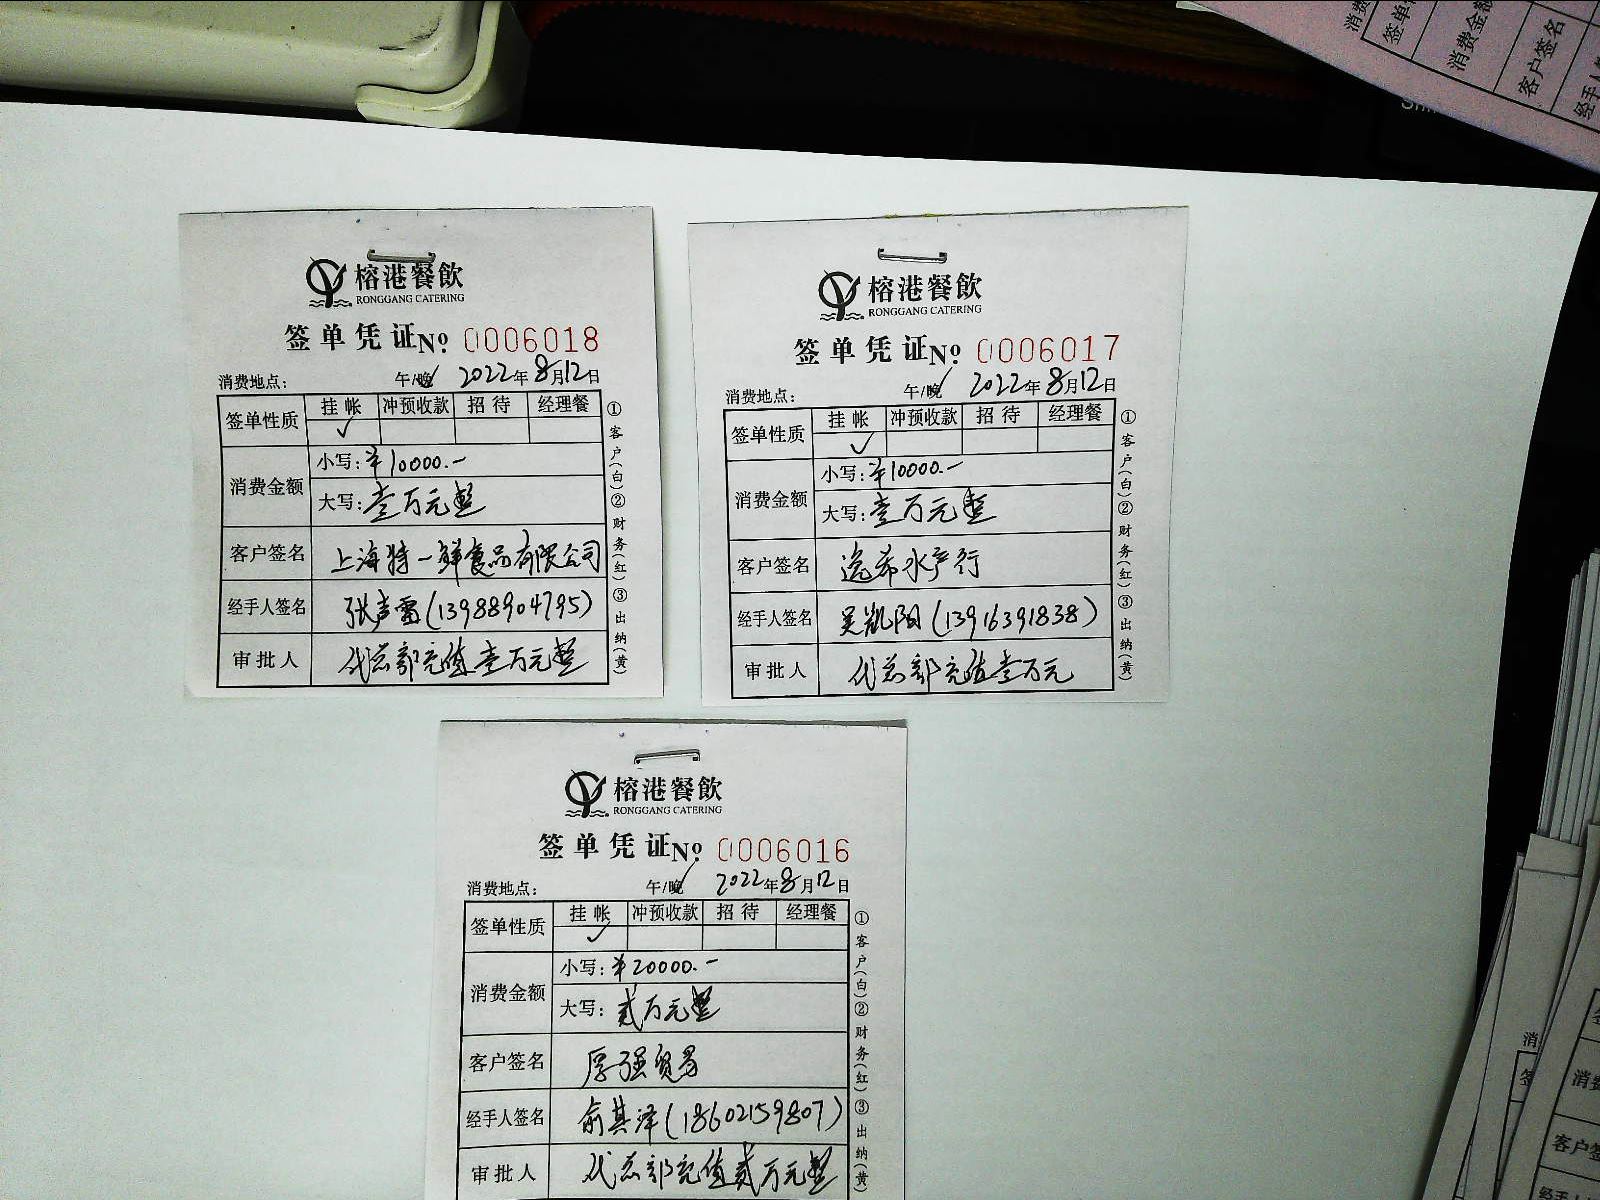 榕港餐飲
RONGGANG CATERING
签单凭证No. 0006018
消费地点: 午/晚 2022年8月12日
签单性质 挂帐 冲预收款 招待 经理餐
✓
消费金额 小写:¥10000.-
大写:壹万元整
客户签名 上海特一鲜食品有限公司
经手人签名 张声雷(13988904795)
审批人 代总部充值壹万元整
①客户(白)②财务(红)③出纳(黄)
榕港餐飲
RONGGANG CATERING
签单凭证No. 0006017
消费地点: 午/晚 2022年8月12日
签单性质 挂帐 冲预收款 招待 经理餐
✓
消费金额 小写:¥10000.-
大写:壹万元整
客户签名 逸希水产行
经手人签名 吴凯阳(13916391838)
审批人 代总部充值壹万元
①客户(白)②财务(红)③出纳(黄)
榕港餐飲
RONGGANG CATERING
签单凭证No. 0006016
消费地点: 午/晚 2022年8月12日
签单性质 挂帐 冲预收款 招待 经理餐
✓
消费金额 小写:¥20000.-
大写:贰万元整
客户签名 厚强贸易
经手人签名 俞其泽(18602159807)
审批人 代总部充值贰万元整
①客户(白)②财务(红)③出纳(黄)
消费
签单
消费金额
客户签名
经手人
消
签
消费
客户
经手